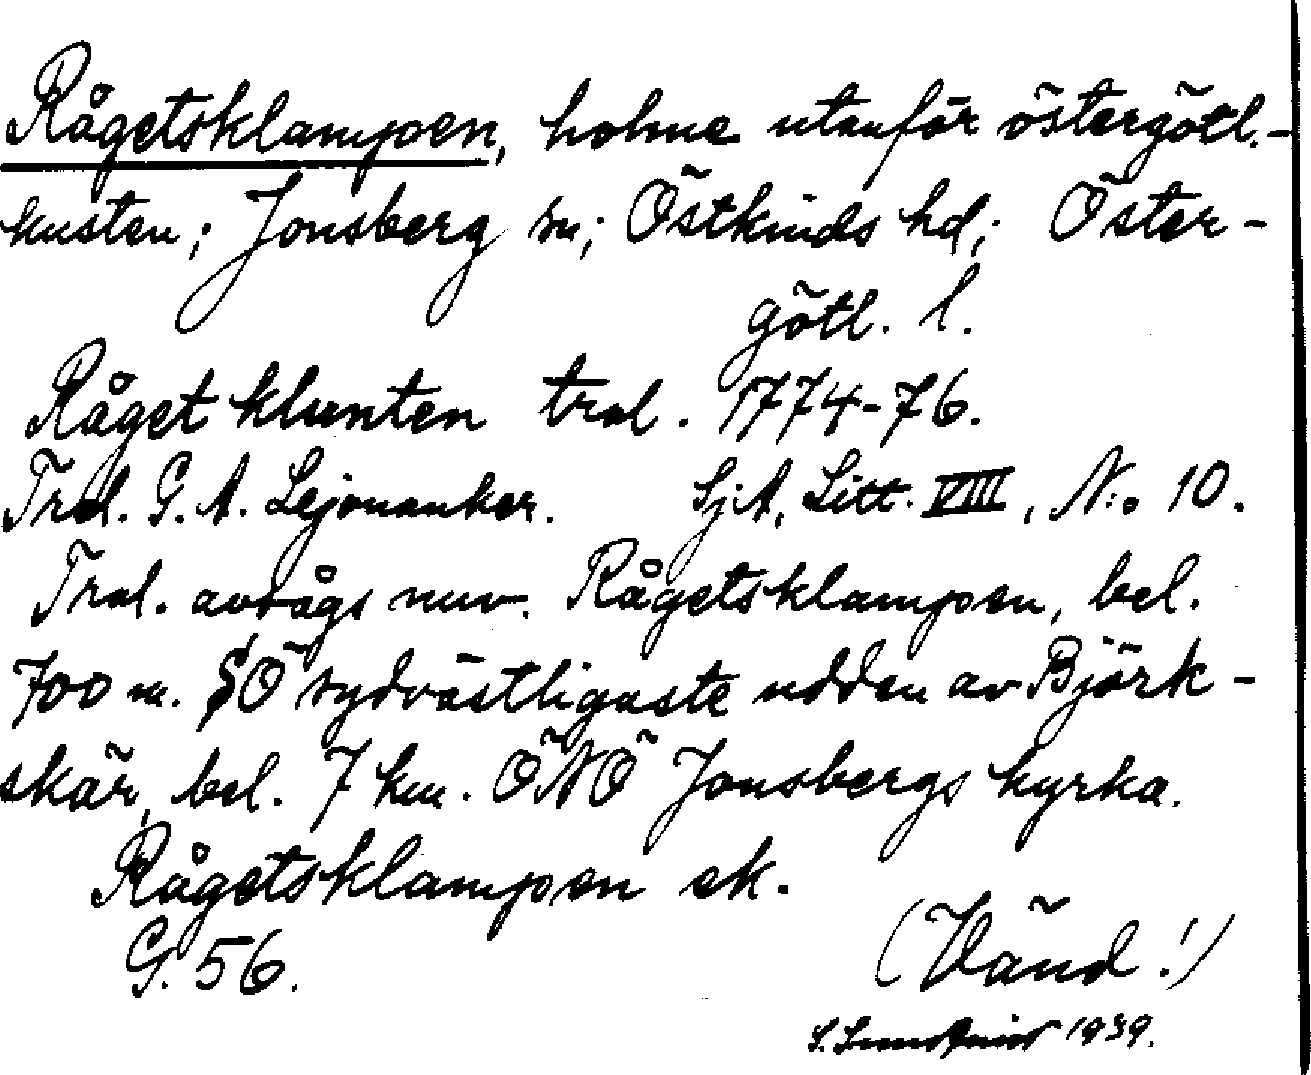 Rågetsklampen, holme utanför östergötl.-
kusten; Jonsberg sn; Östkinds hd; Öster-
götl. l.
Råget klunten trol. 1774-76.
Trol. G. A. Lejonanker. SjA, Litt. VIII, N:o 10.
Trol. avsågs nuv. Rågetsklampen, bel.
700 m. SÖ sydvästligaste udden av Björk-
skär, bel. 7 km. ÖNÖ Jonsbergs kyrka.
Rågetsklampen ek.
G. 56.
(Vänd!)
S. Lundqvist 1939.